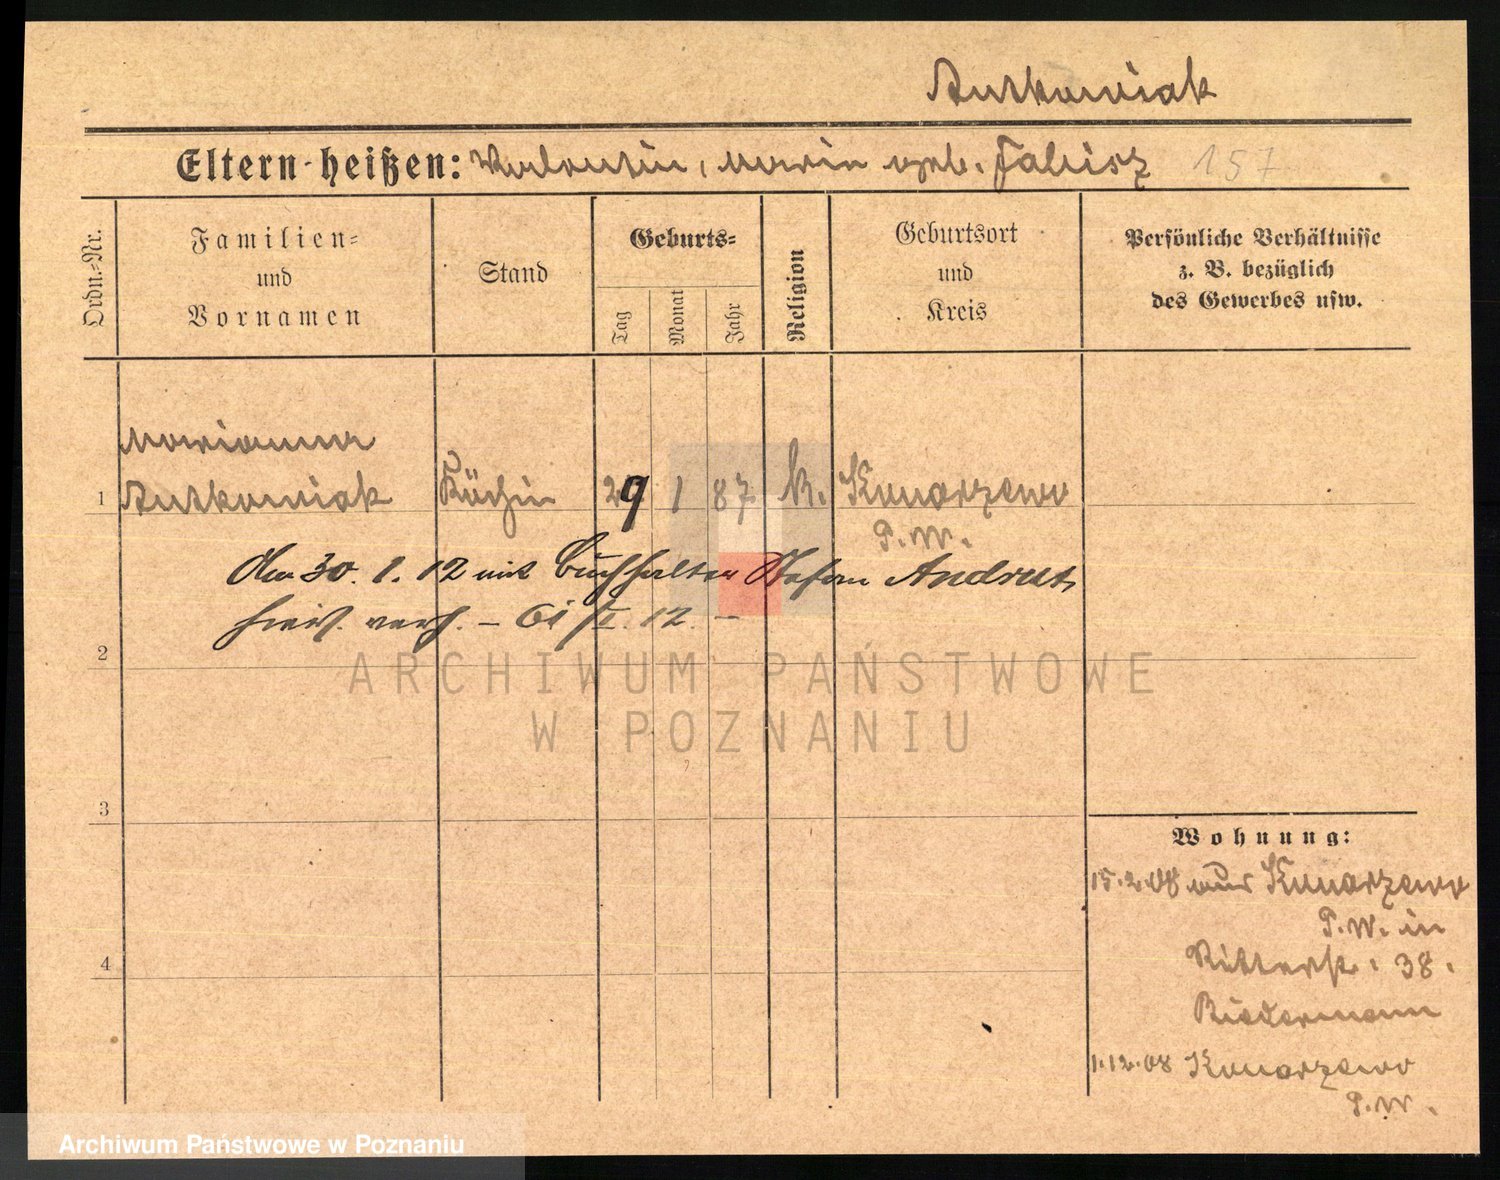 Antkowiak
Eltern heißen: Valentin, Maria geb. Fabisz 157
Ordn.-Nr.
Familien=
und
Vornamen
Stand
Geburts=
Tag
Monat
Jahr
Religion
Geburtsort
und
Kreis
Persönliche Verhältnisse
z. B. bezüglich
des Gewerbes usw.
Marianna
1 Antkowiak Köchin 29 1 87 k. Konarzewo
P.W.
30. 1. 12 mit Buchhalter Stefan Andrut,
hies. verh. – I. 12. –
2
ARCHIWUM PAŃSTWOWE
W POZNANIU
3
Wohnung:
15.2.08 aus Konarzewo
P.W. in
4 Ritterstr. 38.
Biedermann
1.12.08 Konarzewo
P.W.
Archiwum Państwowe w Poznaniu